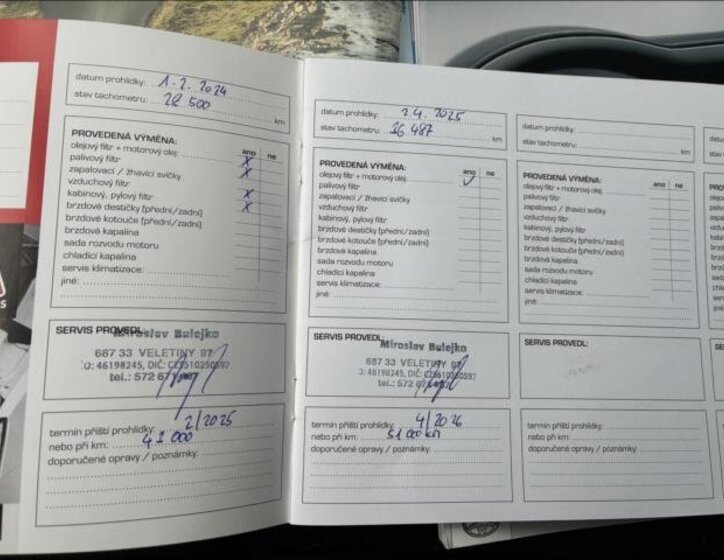 datum prohlídky: 1. 2. 2024
stav tachometru: 28 500 km
PROVEDENÁ VÝMĚNA: ano ne
olejový filtr + motorový olej X
palivový filtr X
zapalovací / žhavicí svíčky
vzduchový filtr X
kabinový, pylový filtr X
brzdové destičky (přední/zadní)
brzdové kotouče (přední/zadní)
brzdová kapalina
sada rozvodu motoru
chladicí kapalina
servis klimatizace:
jiné:
SERVIS PROVEDL:
Miroslav Bulejko
687 33 VELETINY 97
IČO: 46198245, DIČ:
tel.: 572 6
termín příští prohlídky: 2/2025
nebo při km: 41 000
doporučené opravy / poznámky:
datum prohlídky: 2 4. 2025
stav tachometru: 36 487 km
PROVEDENÁ VÝMĚNA: ano ne
olejový filtr + motorový olej ✓
palivový filtr
zapalovací / žhavicí svíčky
vzduchový filtr
kabinový, pylový filtr
brzdové destičky (přední/zadní)
brzdové kotouče (přední/zadní)
brzdová kapalina
sada rozvodu motoru
chladicí kapalina
servis klimatizace:
jiné:
SERVIS PROVEDL:
Miroslav Bulejko
687 33 VELETINY 97
IČO: 46198245, DIČ:
tel.: 572 6
termín příští prohlídky: 4/2026
nebo při km: 51 000 km
doporučené opravy / poznámky:
datum prohlídky:
stav tachometru: km
PROVEDENÁ VÝMĚNA: ano ne
olejový filtr + motorový olej
palivový filtr
zapalovací / žhavicí svíčky
vzduchový filtr
kabinový, pylový filtr
brzdové destičky (přední/zadní)
brzdové kotouče (přední/zadní)
brzdová kapalina
sada rozvodu motoru
chladicí kapalina
servis klimatizace:
jiné:
SERVIS PROVEDL:
termín příští prohlídky:
nebo při km:
doporučené opravy / poznámky: